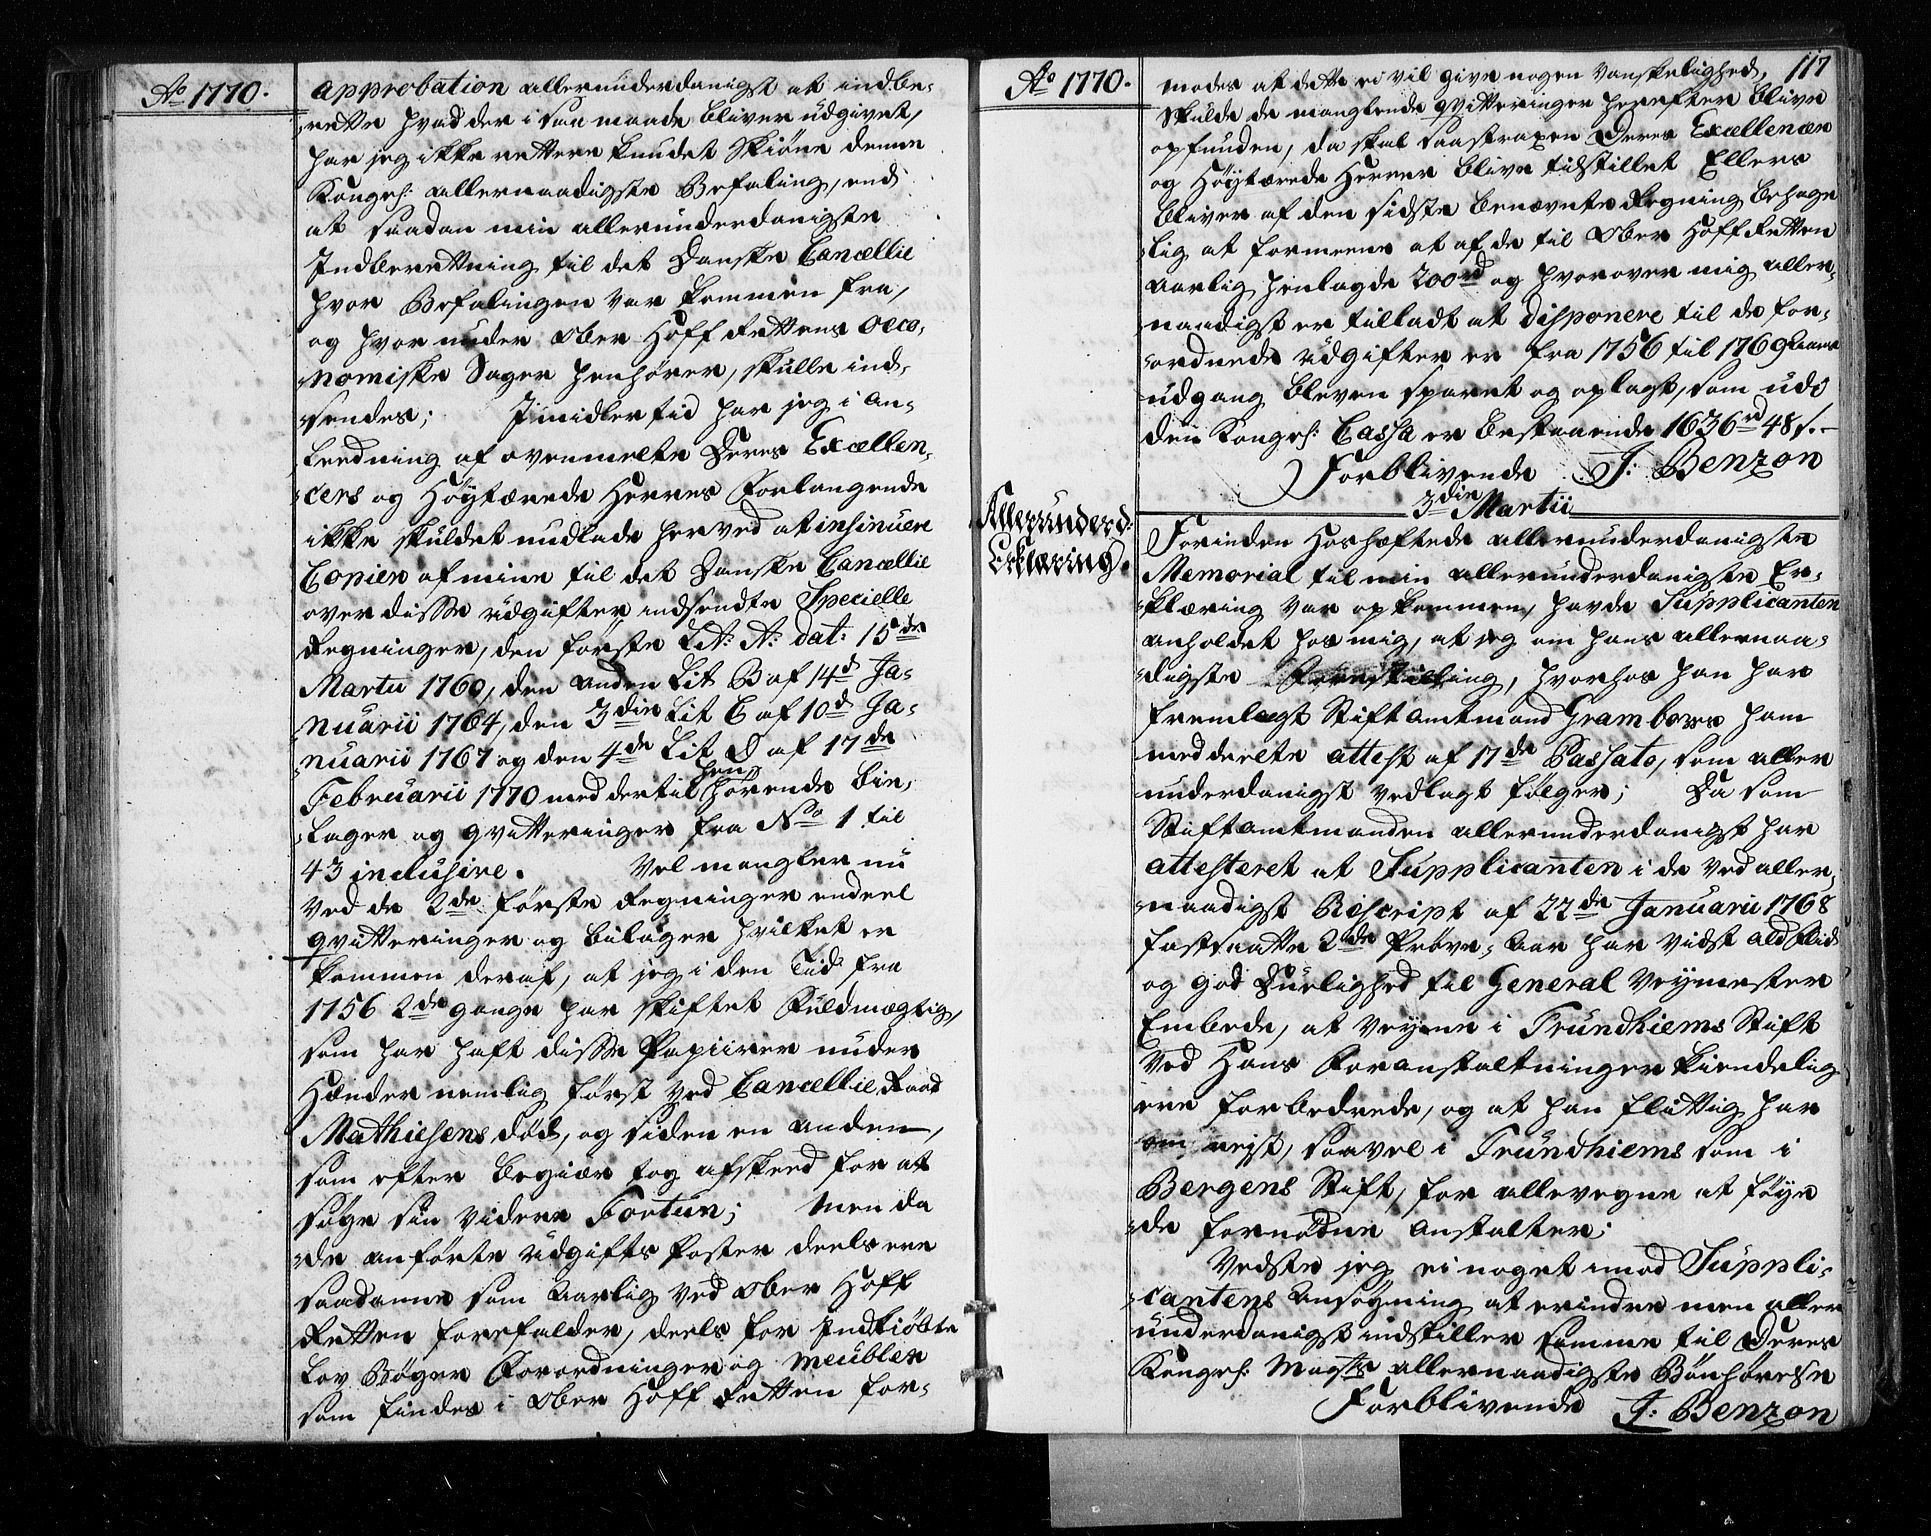 Ao 1770.
approbation allerunderdanigst at indbe-
rette hvad der i saa maade bliver udgivet,
har jeg ikke rettere kundet skiøne denne
Kongel: allernaadigste Befaling, end
at saadan min allerunderdanigste
Indberettning til det Danske Cancellie
hvor Befalingen var kommen fra,
og hvor under Ober Hoff Rettens oeco-
nomiske Sager henhører, skulle ind-
sendes; Imidlertid har jeg i An-
leedning af ovenmelte Deres Excellen-
cers og Høytærede Herres Forlangende
ikke skuldet undlade herved at insinuere
Copien af mine til det Danske Cancellie
over disse udgifter indsendte Specielle
Regninger, den første Lit: A: dat: 15de
Martii 1760, den anden Lit B af 14d Ja-
nuarii 1764, den 3die Lit C af 10d Ja-
nuarii 1767 og den 4de Lit D af 17de
Februarii 1770 med dertil henhørende Bie-
lager og qvitteringer fra No 1 til
43 inclusive. Vel mangler nu
ved de 2de første Regninger endeel
qvitteringer og bilager hvilket er
kommen deraf, at jeg i den Tid fra
1756 2de gange har skiftet Fuldmægtig,
som har haft disse Papiirer under
Hænder nemlig først ved Cancellie Raad
Mathiesens død, og siden en anden,
som efter begiær tog afskeed for at
søge sin videre Fortun; Men da
de anførte udgifts Poster deels ere
saadanne som Aarlig ved Ober Hoff
Retten forefalder, deels for Indkiøbte
Lov Bøger Forordninger og meubler
som findes i Ober Hoff Retten for-
Ao 1770.
117
modes at dette ei vil give nogen vanskelighed,
skulde de manglende qvitteringer herefter blive
opfunden, da skal saa strax en Deres Excellencer
og Høytærede Herrer blive tilstillet Ellers
bliver af den sidste benævnte Regning behage-
lig at fornemme at af de til Ober Hoff Retten
aarlig henlagde 200rd og hvorover mig aller-
naadigst er tilladt at disponere til de for-
ordnede udgifter er fra 1756 til 1769 Aars
udgang bleven sparet og oplagt, som udi
den Kongel: Cassa er bestaaende 1636rd 48s.
Forblivende J: Benzon
3die Martii
Allerunderd:
Erklæring.
Forinden hoshæftede allerunderdanigste
Memorial til min allerunderdanigste Er-
klæring var opkommen, havde Supplicanten
anholdet hos mig, at jeg om hans allernaa-
digste Forestilling, hvorhos han har
fremlagt Stiftamtmand Grambows ham
meddeelte attest af 17de Passato, som aller
underdanigst vedlagt følger; Da som
Stiftamtmanden allerunderdanigst har
attesteret at Supplicanten i de ved aller-
naadigst Rescript af 22de Januarii 1768
fastsatte 2de Prøve-Aar har viist ald Flid
og god Duelighed til General Veymester
Embede, at Veyene i Trundhiems Stift
ved Hans Foranstaltninger kiendelig
ere forbedrede, og at han flittig har
om reyst, saavel i Trundhiems som i
Bergens Stift, for allevegne at føye
de fornødne Anstalter;
Vedste jeg ei noget imod Suppli-
cantens Ansøgning at erindre men aller
underdanigst indstiller samme til Deres
Kongel: Mayts allernaadigste Bønhørelse
Forblivende J: Benzon